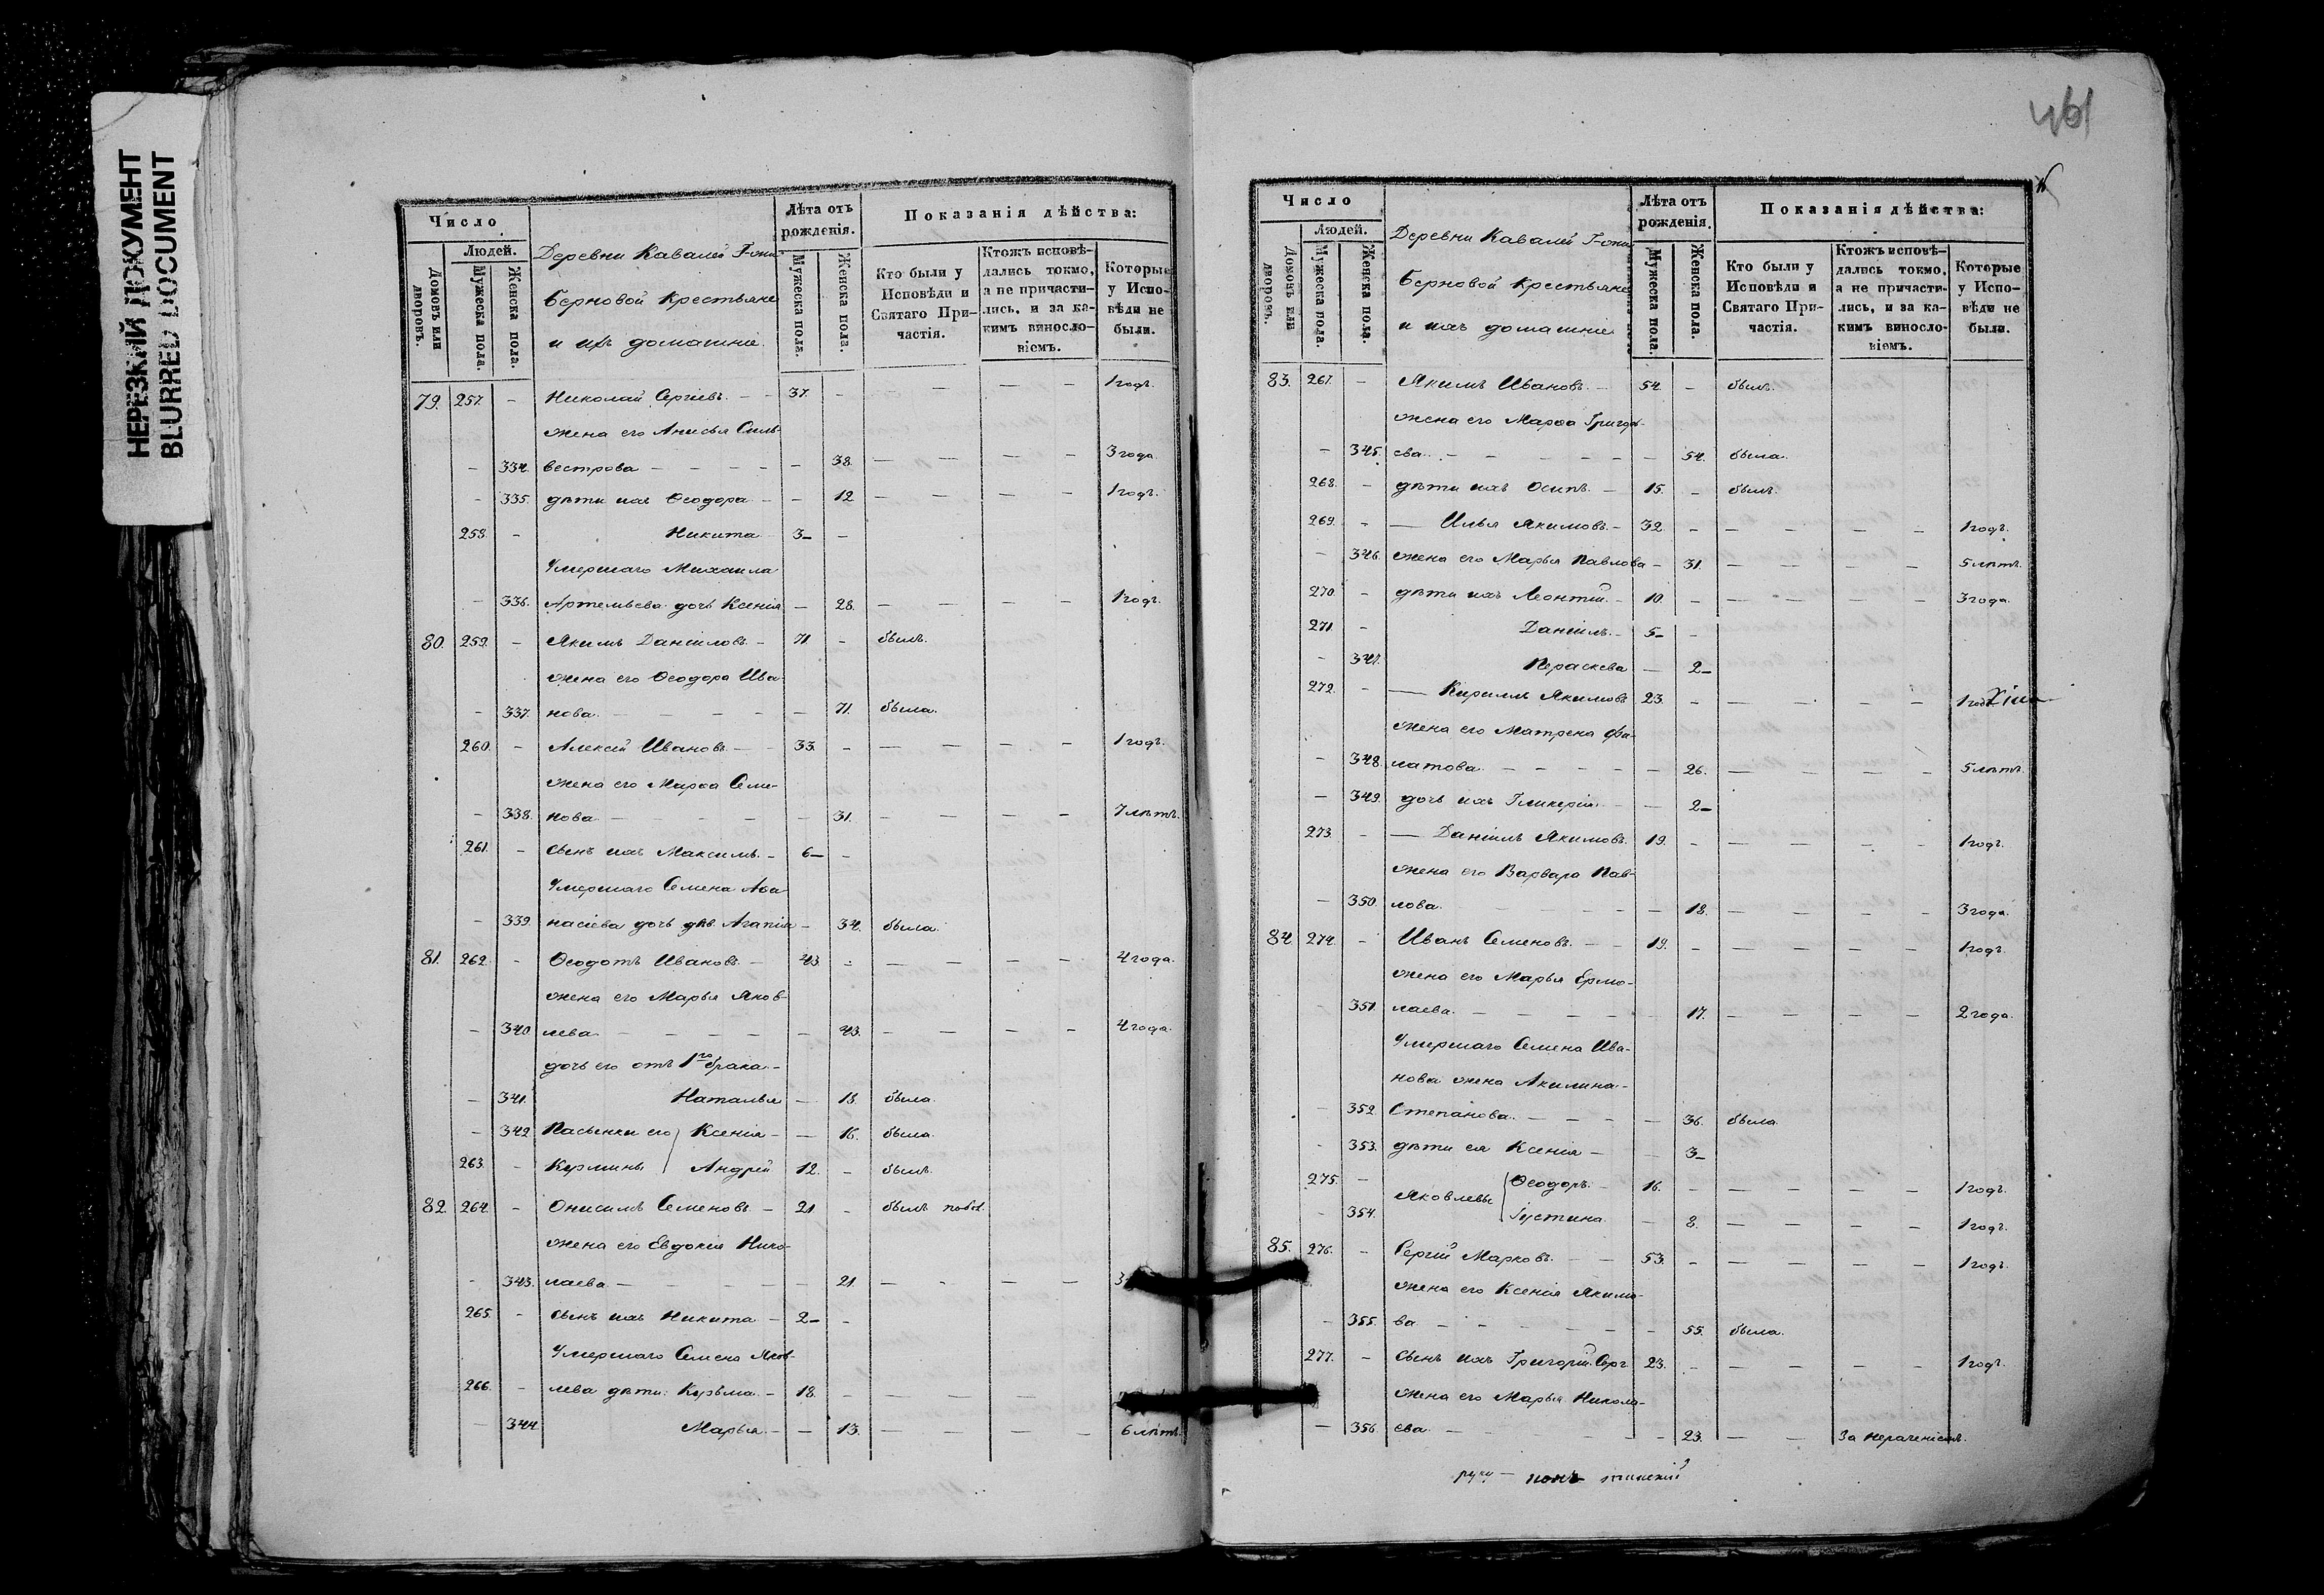 НЕРЕЗКИЙ ДОКУМЕНТ
BLURRED DOCUMENT
461
Число
Людей.
Домовъ или дворовъ.
Мужеска пола.
Женска пола.
Деревни Кавалей Г-жи
Берновой крестьяне
и ихъ домашніе.
Лѣта отъ рожденія.
Мужеска пола.
Женска пола.
Показанія дѣйства:
Кто были у Исповѣди и Святаго Причастія.
Ктожъ исповѣдались токмо, а не причастились, и за какимъ винословіемъ.
Которые у Исповѣди не были.
79. 257. - Николай Сергіевъ - - 37. - - - - - 1 годъ.
жена его Анисья Силь-
- 334. вестрова - - - - - 38. - - - - 3 года
- 335. дѣти ихъ Ѳеодора - - 12 - - - - 1 годъ.
258. - Никита 3 - -
Умершаго Михаила
- 336. Артемьева дочь Ксенія - 28. - - - - 1 годъ.
80. 259. - Якимъ Даніиловъ - 71 - былъ.
жена его Ѳеодора Ива-
- 337. нова. - - - - - 71. была.
260. - Алексій Ивановъ - - 33. - - - - - 1 годъ.
жена его Марѳа Семе-
- 338. нова - - - - - 31. - - - - 7 лѣтъ.
261. - сынъ ихъ Максимъ. - 6 - -
Умершаго Семена Аѳа-
- 339. насіева дочь дѣв. Агапія - 34. была.
81. 262. - Ѳеодотъ Ивановъ - 43. - - - - - 4 года.
жена его Марья Яков-
- 340. лева - - - - - 43. - - - - 4 года.
дочь его отъ 1го брака -
- 341. Наталья - 18. была.
- 342 Пасынки его Ксенія - - 16. была.
263. - Кузмины Андрей 12. - былъ.
82. 264. - Онисимъ Семеновъ - 21 - былъ
жена его Евдокія Нико-
- 343. лаева - - - - - 21 - - - - 3
265. - сынъ ихъ Никита - 2 - -
Умершаго Семена Яков-
266. - лева дѣти: Кузьма. - 18. - - - - -
- 344. Марья. - - 13. - - - - 6 лѣтъ.
Число
Людей.
Домовъ или дворовъ.
Мужеска пола.
Женска пола.
Деревни Кавалей Г-жи
Берновой крестьяне
и ихъ домашніе
Лѣта отъ рожденія.
Мужеска пола.
Женска пола.
Показанія дѣйства:
Кто были у Исповѣди и Святаго Причастія.
Ктожъ исповѣдались токмо, а не причастились, и за какимъ винословіемъ.
Которые у Исповѣди не были.
83. 267. - Якимъ Ивановъ. - 54. - былъ.
жена его Марѳа Григорь-
- 345. ева. - - - - - - 54. была.
268. - дѣти ихъ Осипъ. - 15. - былъ.
269. - - Илья Якимовъ. - 32. - - - - - 1 годъ.
- 346. жена его Марья Павлова - 31. - - - - 5 лѣтъ.
270. - дѣти ихъ Леонтій - 10. - - - - - 3 года.
271. - Даніилъ. - 5 - -
- 347. Параскева - 2 -
272. - - Кириллъ Якимовъ 23. - - - - - 1 годъ
жена его Матрена Фи-
- 348. латова. - - - - - 26. - - - - 5 лѣтъ.
- 349. дочь ихъ Гликерія - - 2 -
273. - - Даніилъ Якимовъ. 19. - - - - - 1 годъ.
жена его Варвара Пав-
- 350. лова. - - - - - 18. - - - - 3 года.
84 274. - Иванъ Семеновъ. - - 19. - - - - - 1 годъ.
жена его Марья Ермо-
- 351. лаева. - - - - - 17. - - - - 2 года.
Умершаго Семена Ива-
нова жена Акилина -
- 352. Степанова. - - - - 36. была.
- 353. дѣти ея Ксенія - - 3 -
275. - Яковлевы Ѳеодоръ. - 16. - - - - - 1 годъ.
- 354. Іустина - 8. - - - - 1 годъ.
85. 276. - Сергій Марковъ. - - 53. - - - - - 1 годъ.
жена его Ксенія Якимо-
- 355. ва - - - - - - 55. была.
277. - сынъ ихъ Григорій Серг. 23. - - - - - 1 годъ.
жена его Марья Никола-
- 356 ева. - - - - - 23. - - За нераченіемъ.